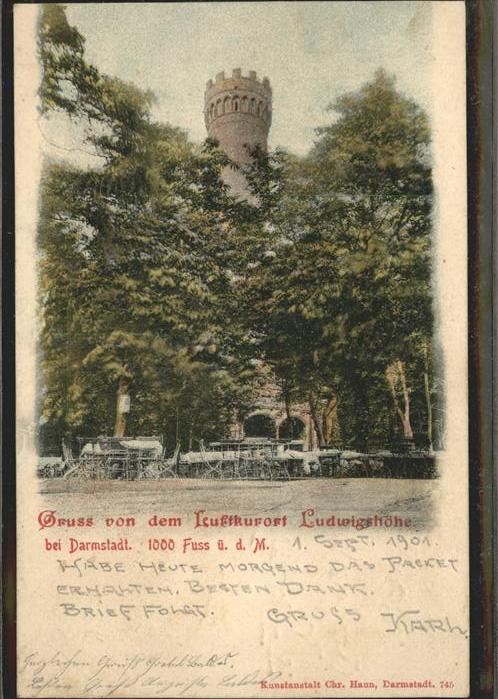 Gruss von dem Luftkurort Ludwigshöhe
bei Darmstadt. 1000 Fuss ü. d. M. 1. Sept. 1901.
HABE HEUTE MORGEND DAS PACKET
ERHALTEN. BESTEN DANK.
BRIEF FOLGT. GRUSS KARL
Herzlichen Gruß
Gruß
Kunstanstalt Chr. Haun, Darmstadt. 745